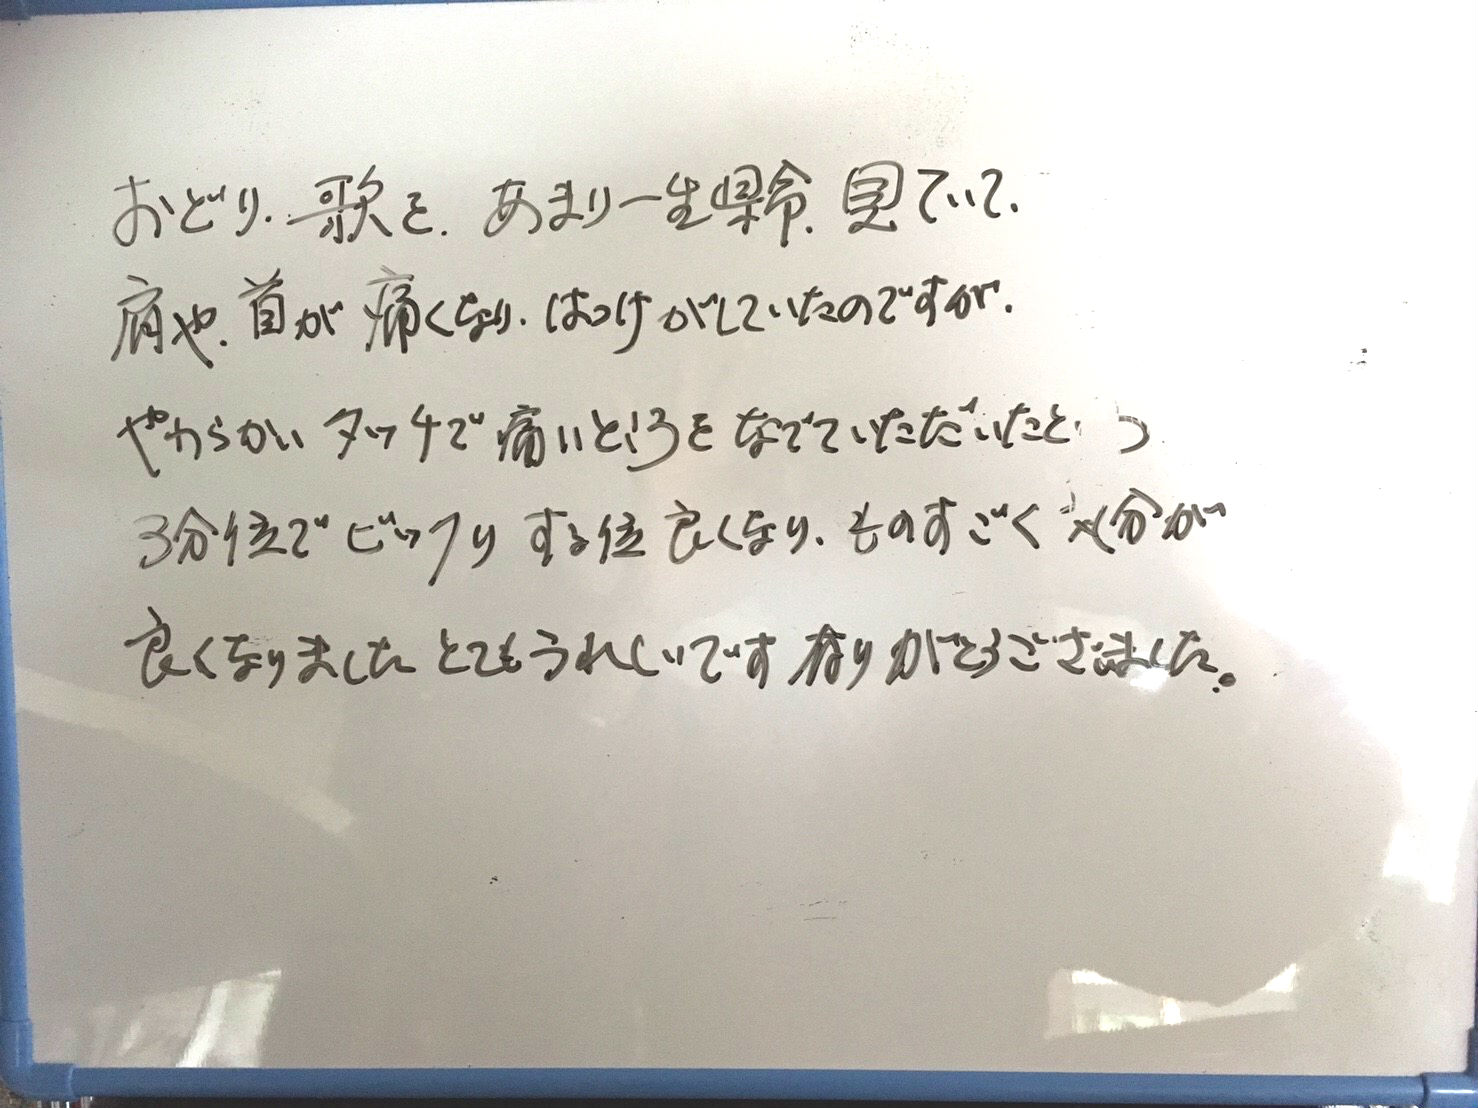 おどり、歌を、あまり一生県命、見ていて、
肩や、首が痛くなり、はつけがしていたのですが、
やわらかいタッチで痛いところをなでていただいたところ
3分位でビックリする位良くなり、ものすごく気分が
良くなりましたとてもうれしいです有りがとうございました。